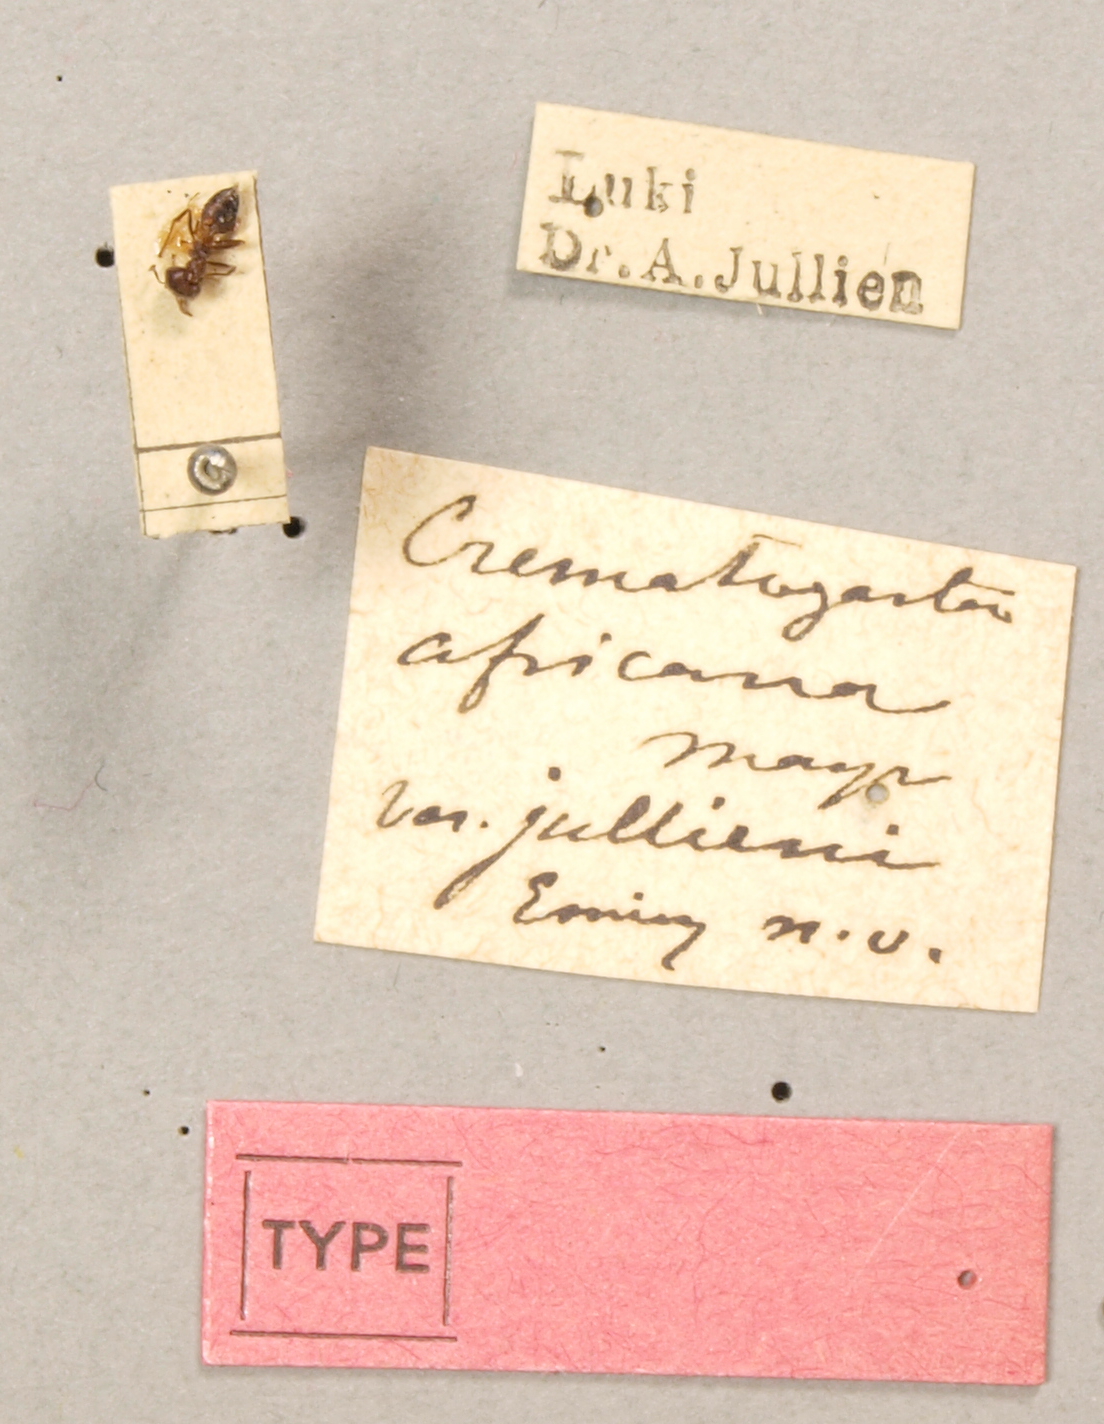 Luki
Dr. A. Jullien
Crematogaster
africana
mayr
var. jullieni
Emery n.v.
TYPE